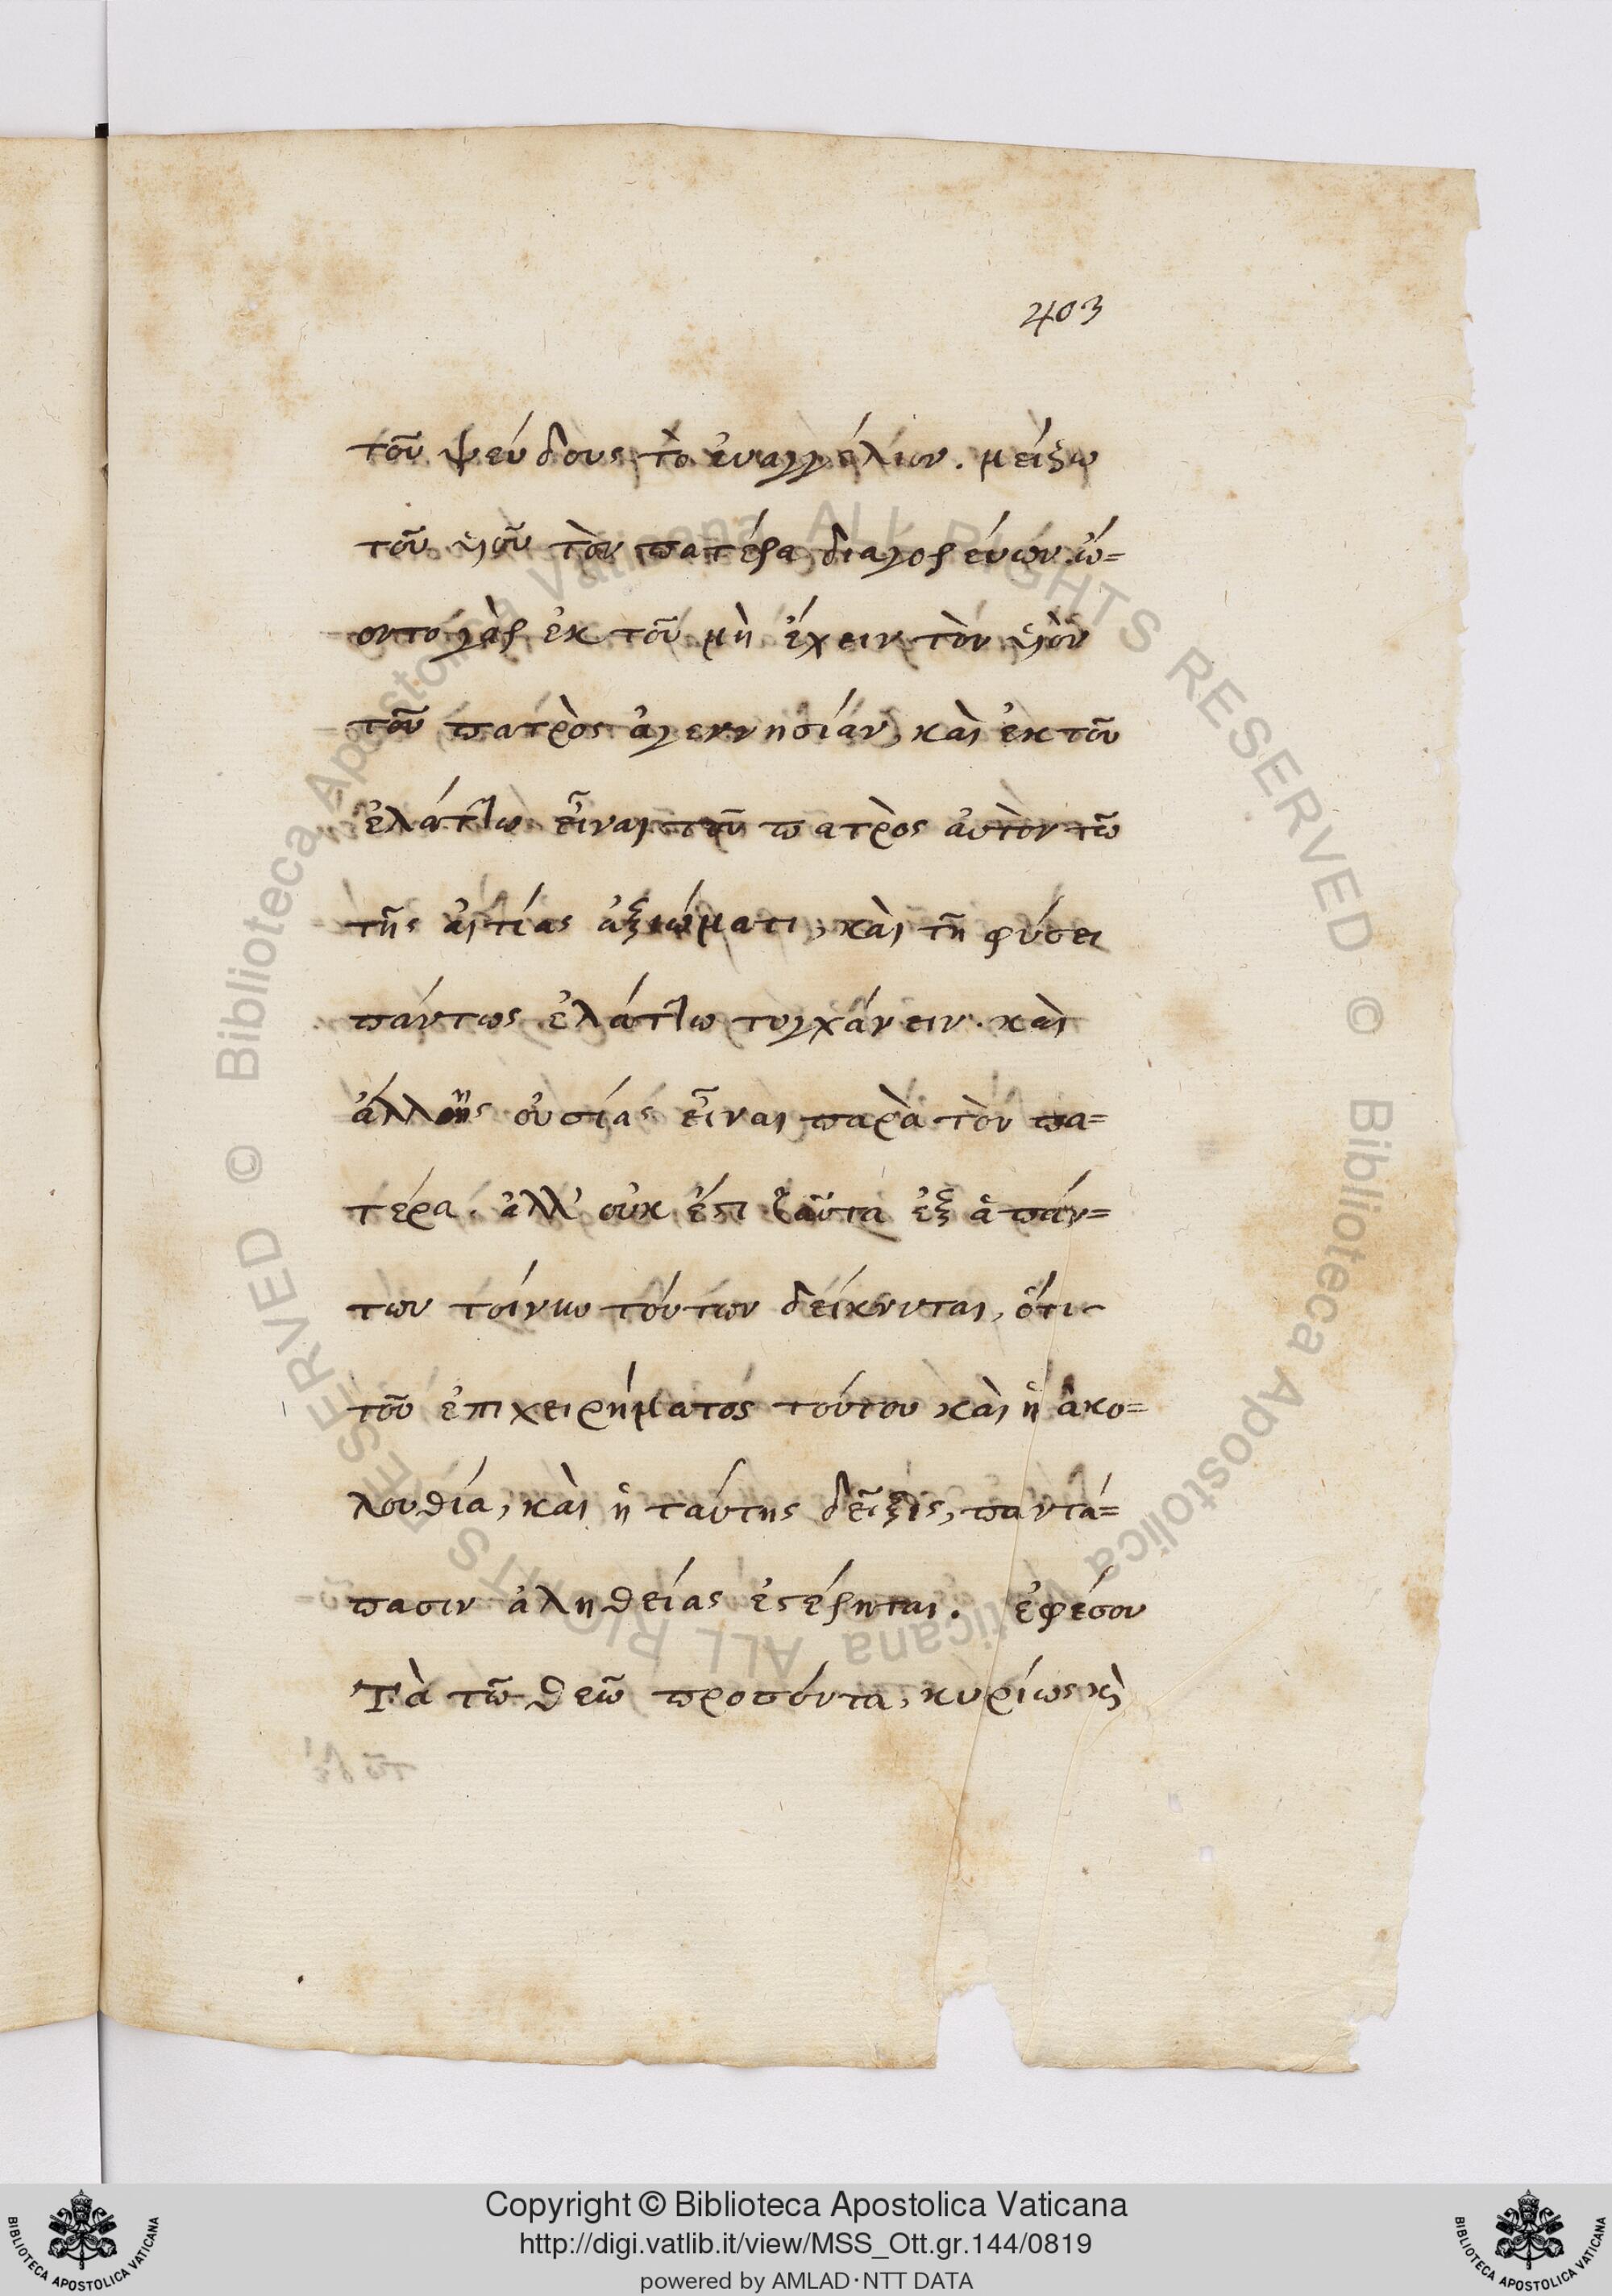 403
τοῦ ψεύδους τὸ ἐυαγγέλιον. μείζω
τοῦ υἱοῦ τὸν πατέρα διαγορέυων. ὤ=
οντο γὰρ ἐκ τοῦ μὴ ἔχειν τὸν υἱὸν
τοῦ πατρὸς ἀγεννησίαν, καὶ ἐκ τοῦ
ἐλάττω εἶναι τοῦ πατρὸς ἀυτὸν τῶ
τῆς ἀιτίας ἀξιώματι, καὶ τῆ φύσει
πάντως ἐλάττω τυγχάνειν. καὶ
ἄλλης οὐσίας εἶναι παρὰ τὸν πα=
τέρα. ἀλλ' οὐκ ἔστι ταῦτα ἐξ ἁπάν=
των τοίνυν τούτων δείκνυται, ὅτι
τοῦ ἐπιχειρήματος τούτου καὶ ἡ ἀκο=
λουθία, καὶ ἡ ταύτης δεῖξις, παντά=
πασιν ἀληθείας ἐστέρηται. ἐφέσου
Τὰ τῶ θεῶ προσόντα, κυρίως κὶ
© Biblioteca Apostolica Vaticana ALL RIGHTS RESERVED © Biblioteca Apostolica Vaticana ALL RIGHTS RESERVED
Copyright © Biblioteca Apostolica Vaticana
http://digi.vatlib.it/view/MSS_Ott.gr.144/0819
powered by AMLAD·NTT DATA
BIBLIOTECA APOSTOLICA VATICANA
BIBLIOTECA APOSTOLICA VATICANA